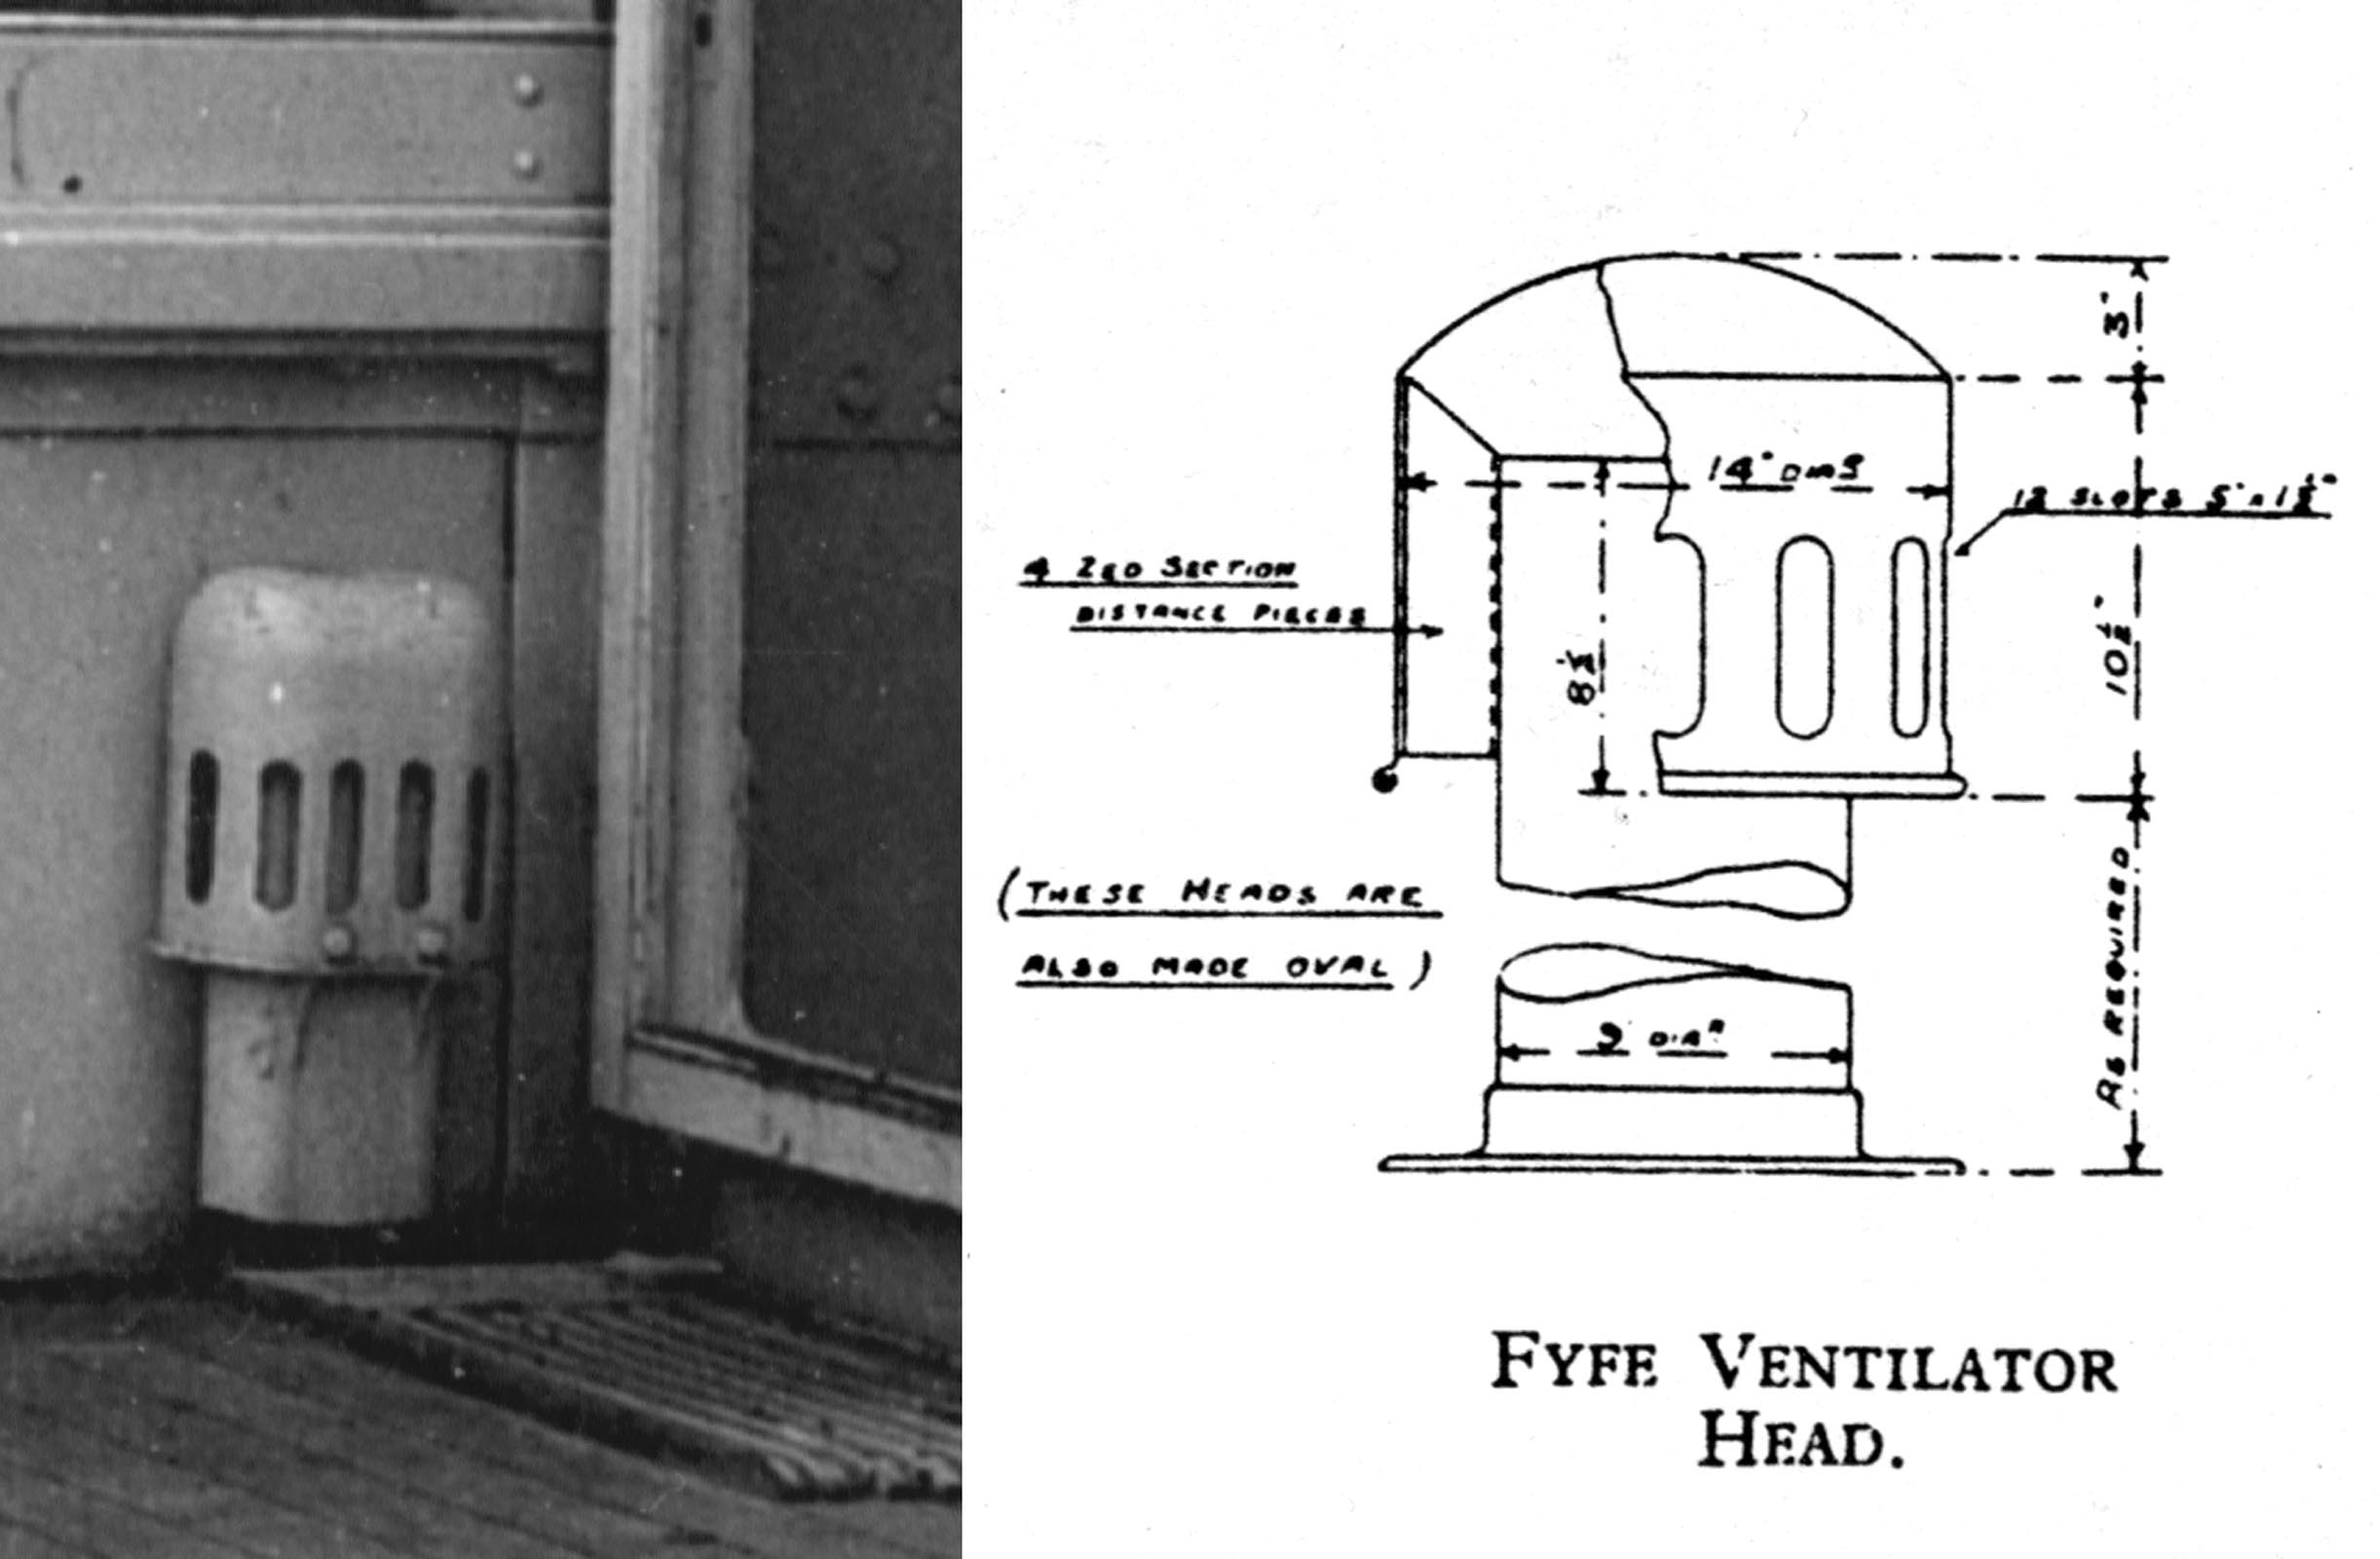 3"
14" DIAR
12 SLOTS 5" x 1½"
4 ZED SECTION
DISTANCE PIECES
8½"
10½"
(THESE HEADS ARE
ALSO MADE OVAL)
9 DIAR
AS REQUIRED
FYFE VENTILATOR
HEAD.